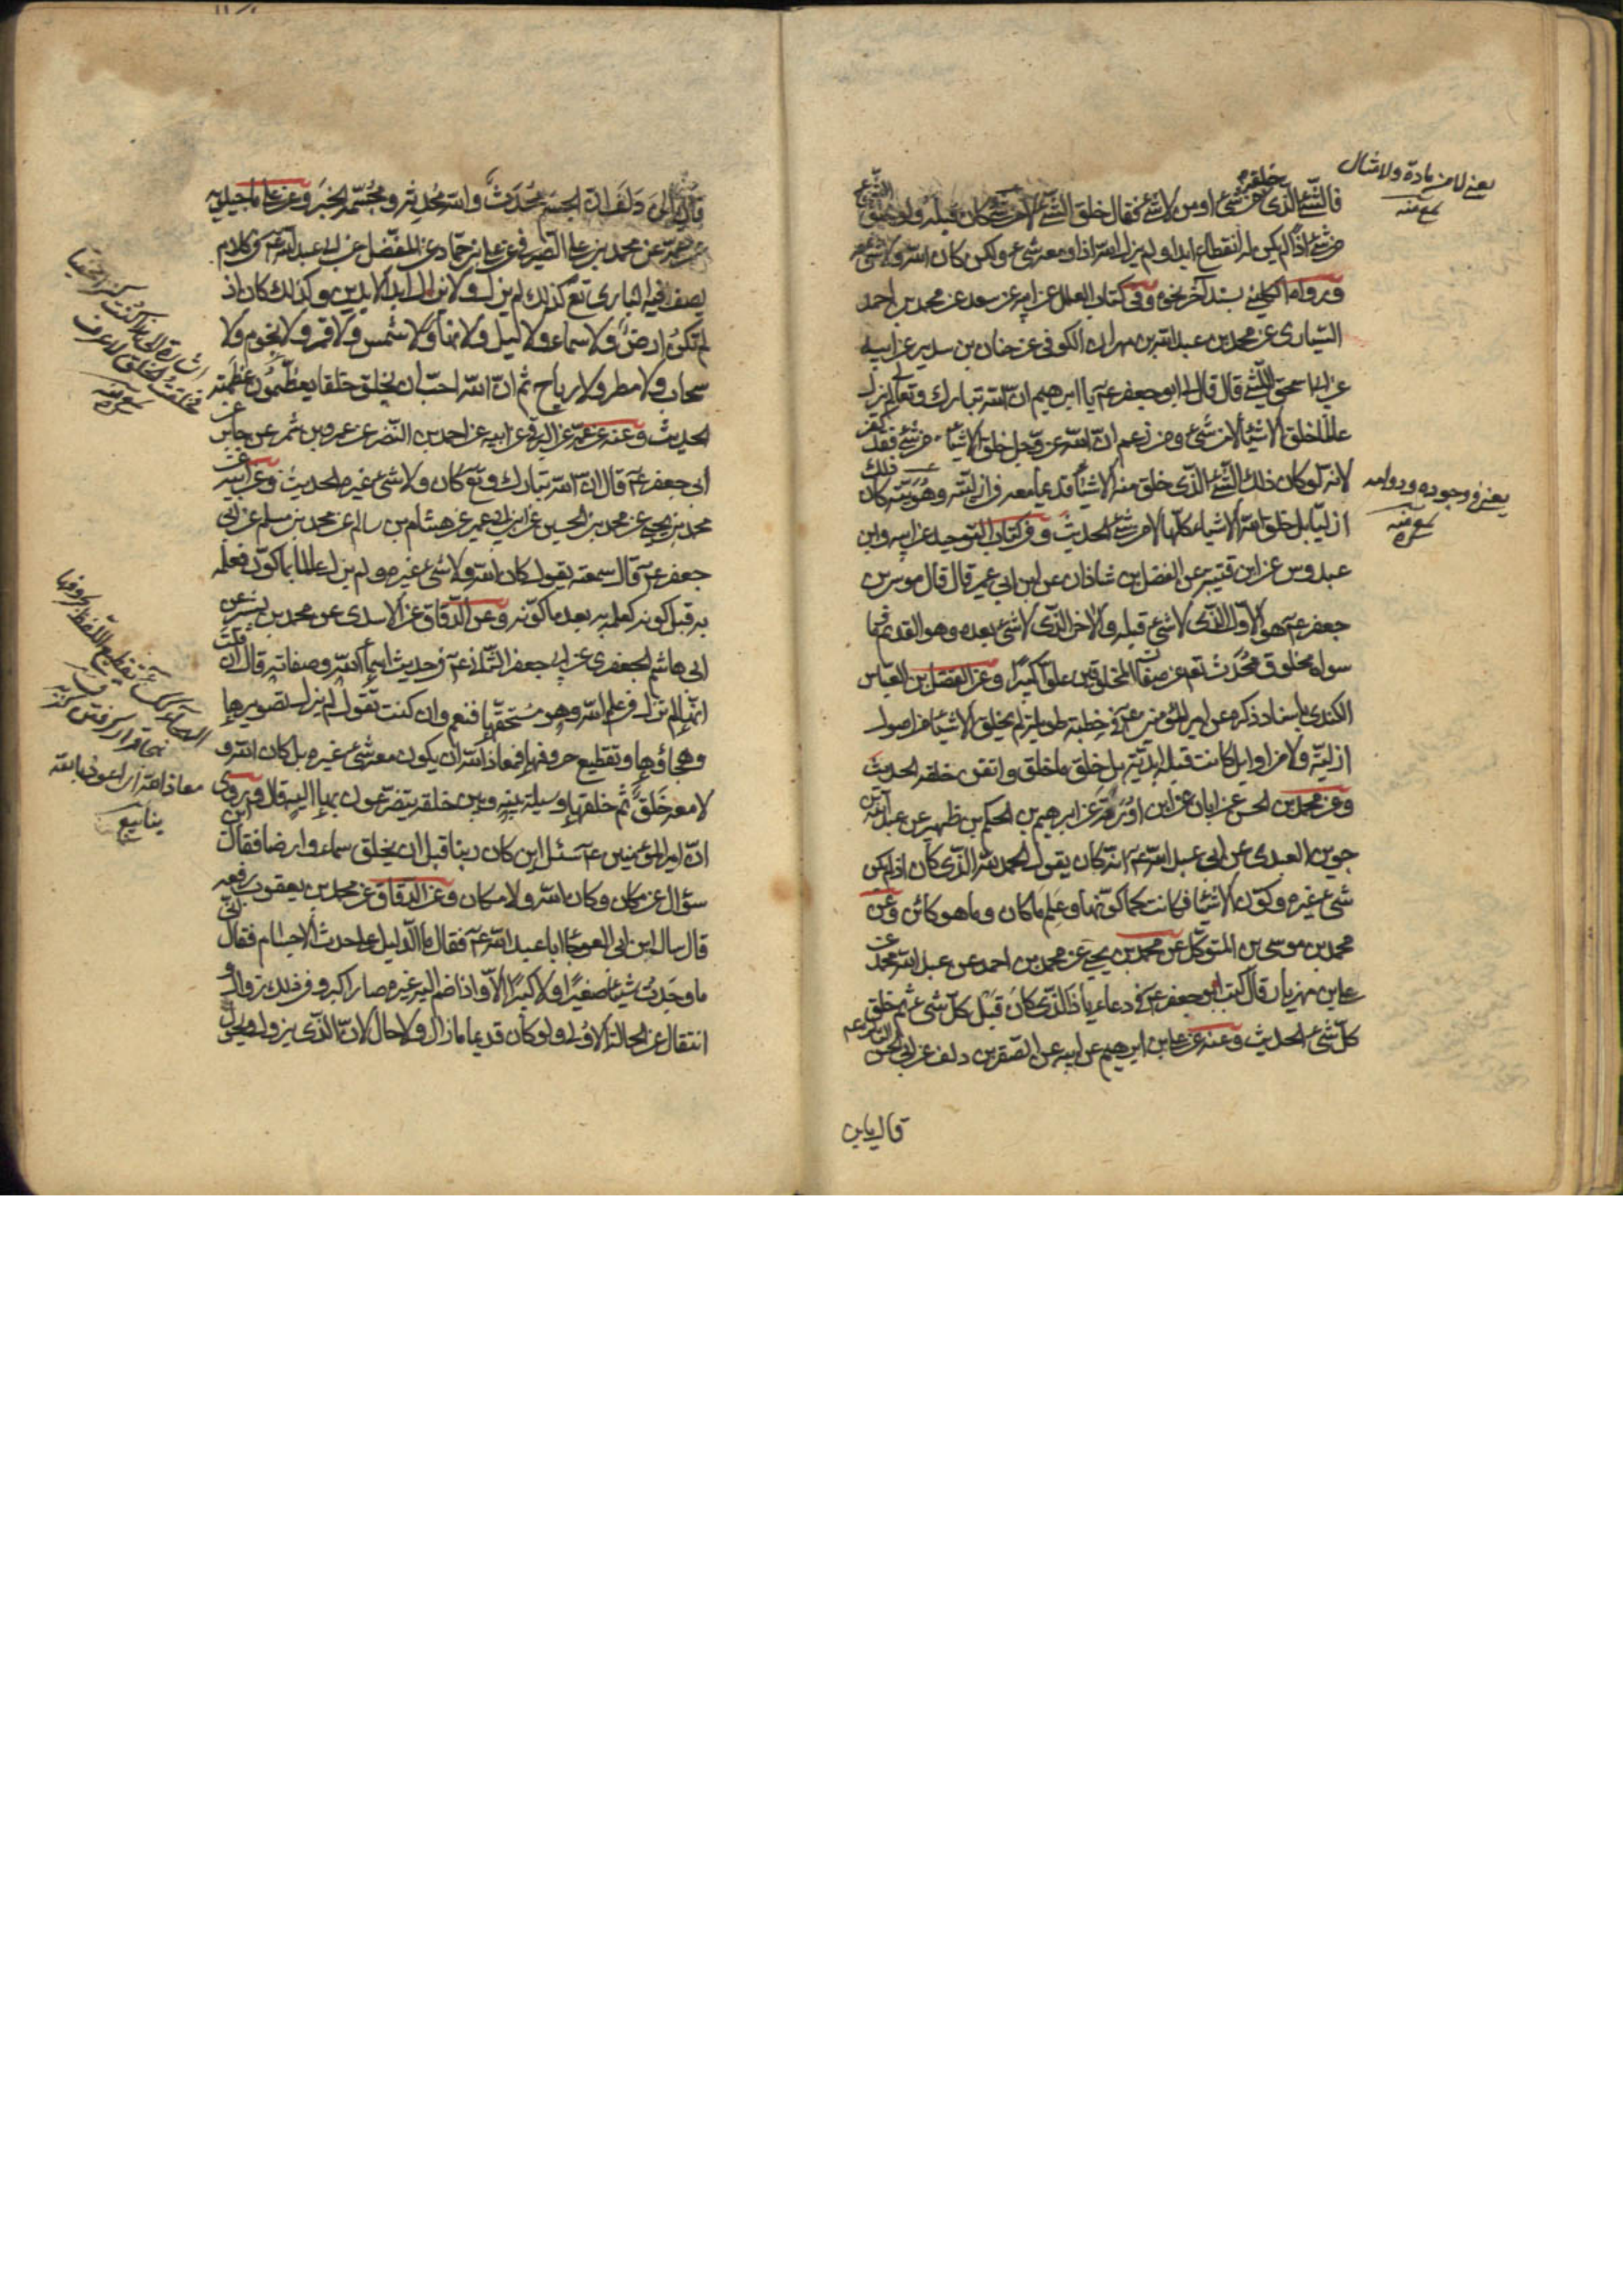 فالشئ الذى خلقه من شئ او من لا شئ فقال خلق الشئ لا من شئ كان قبله ولو خلق الشئ
من شئ اذا لم يكن له انقطاع ابدا ولم يزل الله اذا ومعه شئ ولكن كان الله ولا شئ معه
ورواه الكلينى بسند آخر نحوه وفى كتاب العلل عن ابيه عن سعد عن محمد بن احمد
السيارى عن محمد بن عبد الله بن مهران الكوفى عن حنان بن سدير عن ابيه
عن ابى اسحق الليثى قال قال لى ابو جعفر عم يا ابرهيم ان الله تبارك وتعالى لم يزل
عالما خلق الاشياء لا من شئ ومن زعم ان الله عز وجل خلق الاشياء من شئ فقد كفر
لانه لو كان ذلك الشئ الذى خلق منه الاشياء قديما معه فى ازليته وهويته كان ذلك
ازليا بل خلق الله الاشياء كلها لا من شئ الحديث وفى كتاب التوحيد عن ابيه وابن
عبدوس عن ابن قتيبة عن الفضل بن شاذان عن ابن ابى عمير قال قال موسى بن
جعفر عم هو الاول الذى لا شئ قبله والاخر الذى لا شئ بعده وهو القديم وما
سواه مخلوق محدث تعالى عن صفات المخلوقين علوا كبيرا وعن الفضل بن العباس
الكندى باسناد ذكره عن امير المؤمنين عم فى خطبة طويلة لم يخلق الاشياء من اصول
ازلية ولا من اوايل كانت قبله ابدية بل خلق ما خلق واتقن خلقه الحديث
وعن محمد بن الحسن عن ابان عن ابن اورمة عن ابرهيم بن الحكم بن ظهير عن عبد الله بن
جوين العبدى عن ابى عبد الله عم انه كان يقول الحمد لله الذى كان اذ لم يكن
شئ غيره وكون الاشياء فكانت كما كونها وعلم ما كان وما هو كائن وعن
محمد بن موسى بن المتوكل عن محمد بن يحيى عن محمد بن احمد عن عبد الله بن محمد عن
على بن مهزيار قال كتب ابو جعفر عم فى دعاء يا ذا الذى كان قبل كل شئ ثم خلق
كل شئ الحديث وعنه عن على بن ابرهيم عن ابيه عن الصقر بن دلف عن ابى الحسن الثالث عم
قال يا بن
يعنى لا من مادة ولا مثال
سمع منه
يعنى فى وجوده ودوامه
سمع منه
قال يا بن دلف ان الجسم محدث والله محدثه ومجسمه الخبر وعن على ماجيلويه
عن عمه عن محمد بن على الصيرفى عن على بن حماد عن المفضل عن ابى عبد الله عم فى كلام
يصف فيه البارى تع كذلك لم يزل ولا يزال ابد الابدين وكذلك كان اذ
لم تكن ارض ولا سماء ولا ليل ولا نهار ولا شمس ولا قمر ولا نجوم ولا
سحاب ولا مطر ولا رياح ثم ان الله احب ان يخلق خلقا يعظمون عظمته
الحديث وعنه عن عمه عن البرقى عن ابيه عن احمد بن النضر عن عمرو بن شمر عن جابر عن
ابى جعفر عم قال ان الله تبارك وتع كان ولا شئ غيره الحديث وعن ابيه عن
محمد بن يحيى عن محمد بن الحسين عن ابن ابى عمير عن هشام بن سالم عن محمد بن مسلم عن ابى
جعفر عم قال سمعته يقول كان الله ولا شئ غيره ولم يزل عالما بما كون فعلمه
به قبل كونه كعلمه به بعد ما كونه وعن الدقاق عن الاسدى عن محمد بن بشر عن
ابى هاشم الجعفرى عن ابى جعفر الثانى عم فى حديث اسماء الله وصفاته قال ان قلت
انها لم تزل فى علم الله وهو مستحقها فنعم وان كنت تقول لم يزل تصويرها
وهجاؤها وتقطيع حروفها فمعاذ الله ان يكون معه شئ غيره بل كان الله و
لا معه خلق ثم خلقها وسيلة بينه وبين خلقه يتضرعون بها اليه قال وروى
ان امير المؤمنين عم سئل اين كان ربنا قبل ان يخلق سماء وارضا فقال اين
سؤال عن مكان وكان الله ولا مكان وعن الدقاق عن محمد بن يعقوب رفعه
قال سال ابن ابى العوجاء ابا عبد الله عم فقال ما الدليل على حدث الاجسام فقال انى
ما وجدت شيئا صغيرا ولا كبيرا الا واذا ضم اليه غيره صار اكبر وفى ذلك زوال و
انتقال عن الحالة الاولى ولو كان قديما ما زال ولا حال لان الذى يزول ويحول
اشارة الى كنت كنزا مخفيا
فخلقت الخلق لاعرف
سمع منه
تقطيع اللفظ حروفها
معاذ الله اى اعوذ بالله
ينابيع